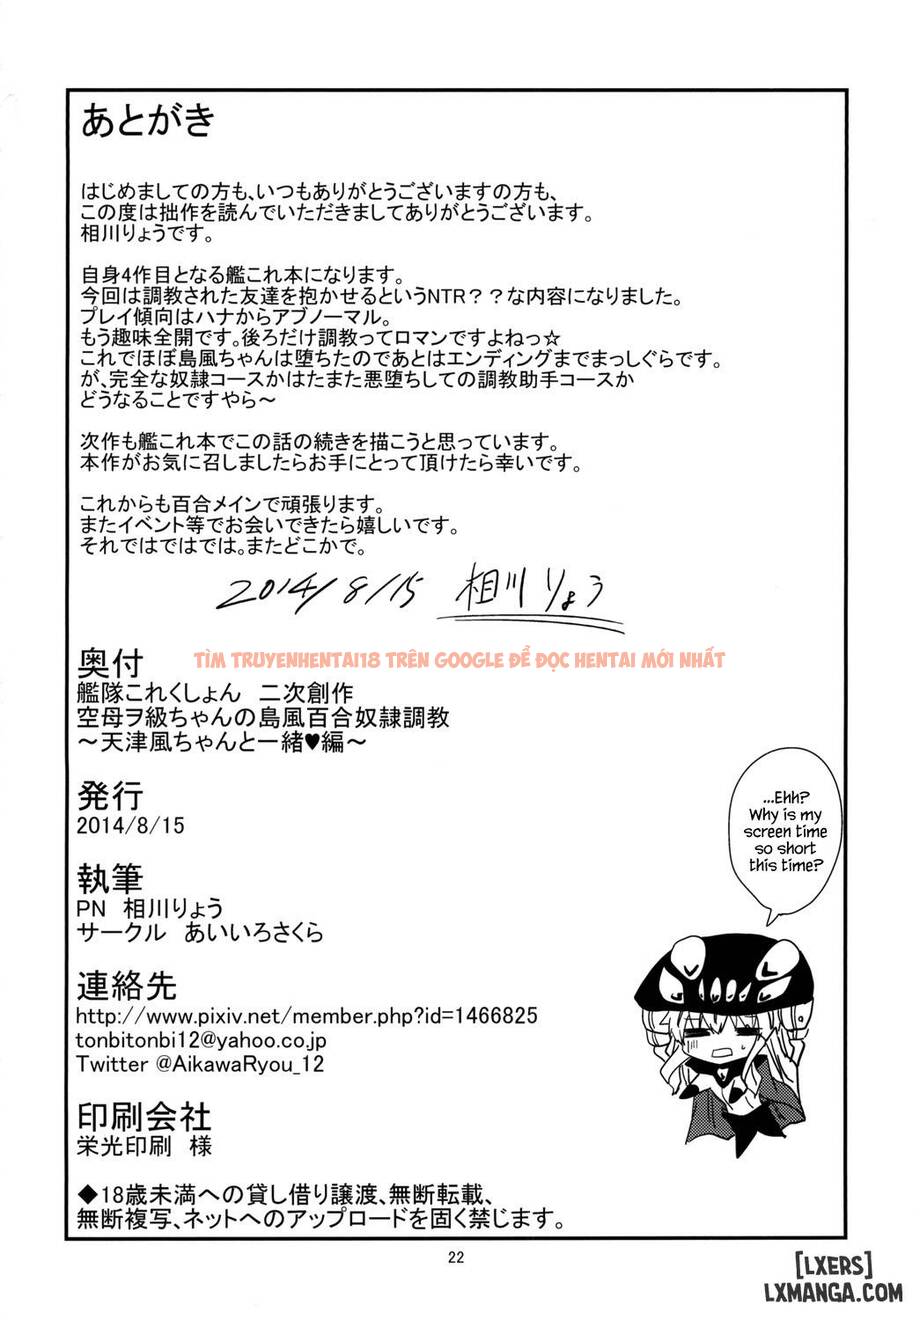 あとがき
はじめましての方も、いつもありがとうございますの方も、
この度は拙作を読んでいただきましてありがとうございます。
相川りょうです。
自身4作目となる艦これ本になります。
今回は調教された友達を抱かせるというNTR？？な内容になりました。
プレイ傾向はハナからアブノーマル。
もう趣味全開です。後ろだけ調教ってロマンですよねっ☆
これでほぼ島風ちゃんは堕ちたのであとはエンディングまでまっしぐらです。
が、完全な奴隷コースかはたまた悪堕ちしての調教助手コースか
どうなることですやら～
次作も艦これ本でこの話の続きを描こうと思っています。
本作がお気に召しましたらお手にとって頂けたら幸いです。
これからも百合メインで頑張ります。
またイベント等でお会いできたら嬉しいです。
それではではでは。またどこかで。
2014/8/15 相川りょう
奥付
TÌM TRUYENHENTAI18 TRÊN GOOGLE ĐỂ ĐỌC HENTAI MỚI NHẤT
艦隊これくしょん 二次創作
空母ヲ級ちゃんの島風百合奴隷調教
～天津風ちゃんと一緒♥編～
発行
2014/8/15
...Ehh?
Why is my
screen time
so short
this time?
執筆
PN 相川りょう
サークル あいいろさくら
連絡先
http://www.pixiv.net/member.php?id=1466825
tonbitonbi12@yahoo.co.jp
Twitter @AikawaRyou_12
印刷会社
栄光印刷 様
◆18歳未満への貸し借り譲渡、無断転載、
無断複写、ネットへのアップロードを固く禁じます。
22
[LXERS]
LXMANGA.COM